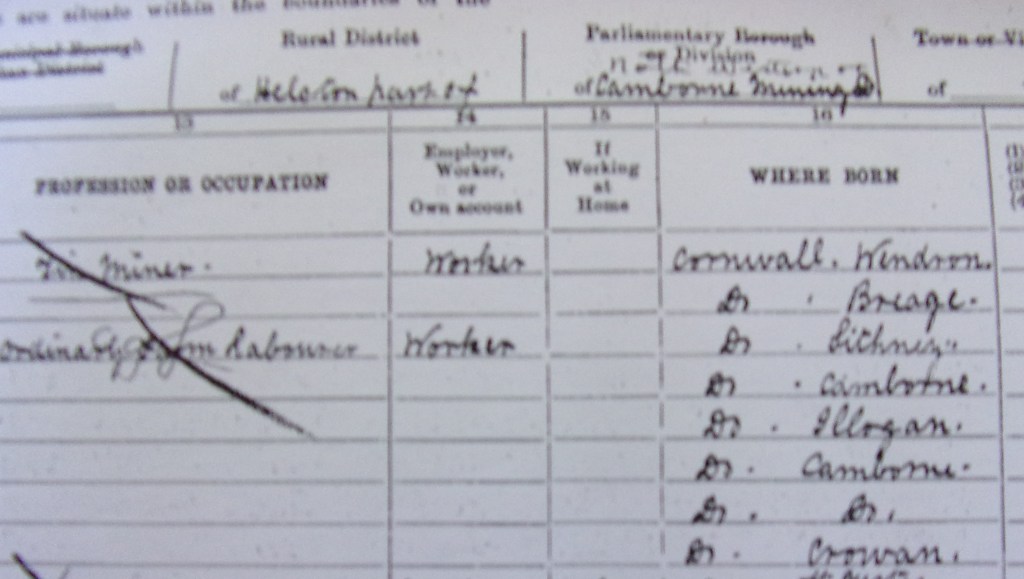 are situate within the boundaries of the
Municipal Borough
Rural District
Parliamentary Borough
or Division
Town or
of Helston part of
of Camborne Mining D
of
13
14
15
16
PROFESSION OR OCCUPATION
Employer,
Worker,
or
Own account
If
Working
at
Home
WHERE BORN
Tin Miner.
Worker
Cornwall. Wendron.
Do . Breage.
Ordinary Farm Labourer
Worker
Do . Sithney.
Do . Camborne.
Do . Illogan.
Do . Camborne.
Do . Do.
Do . Crowan.